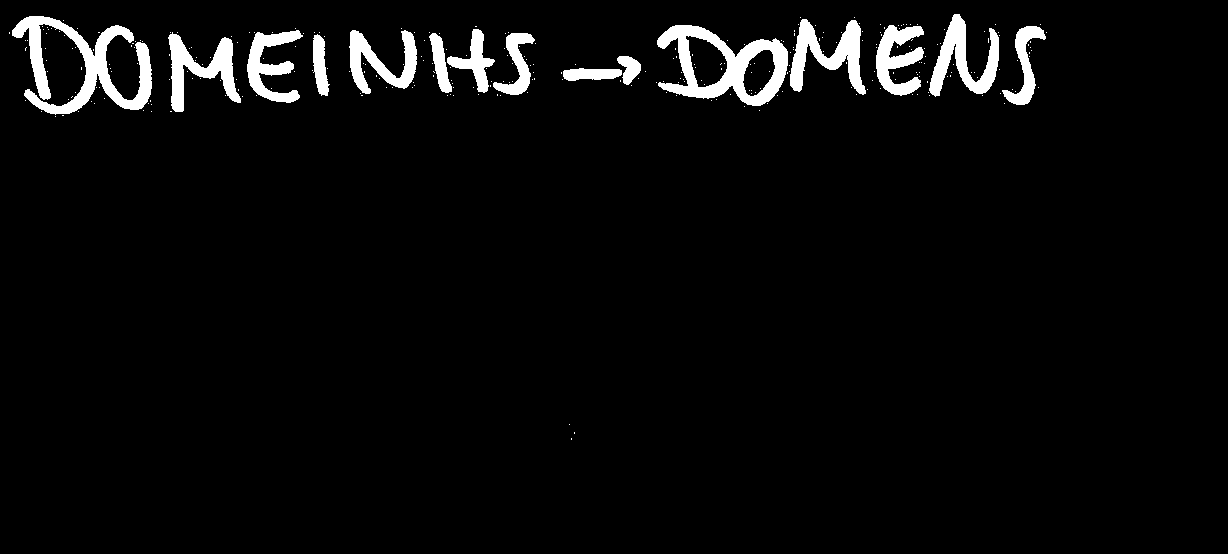 DOMEINHS → DOMENS